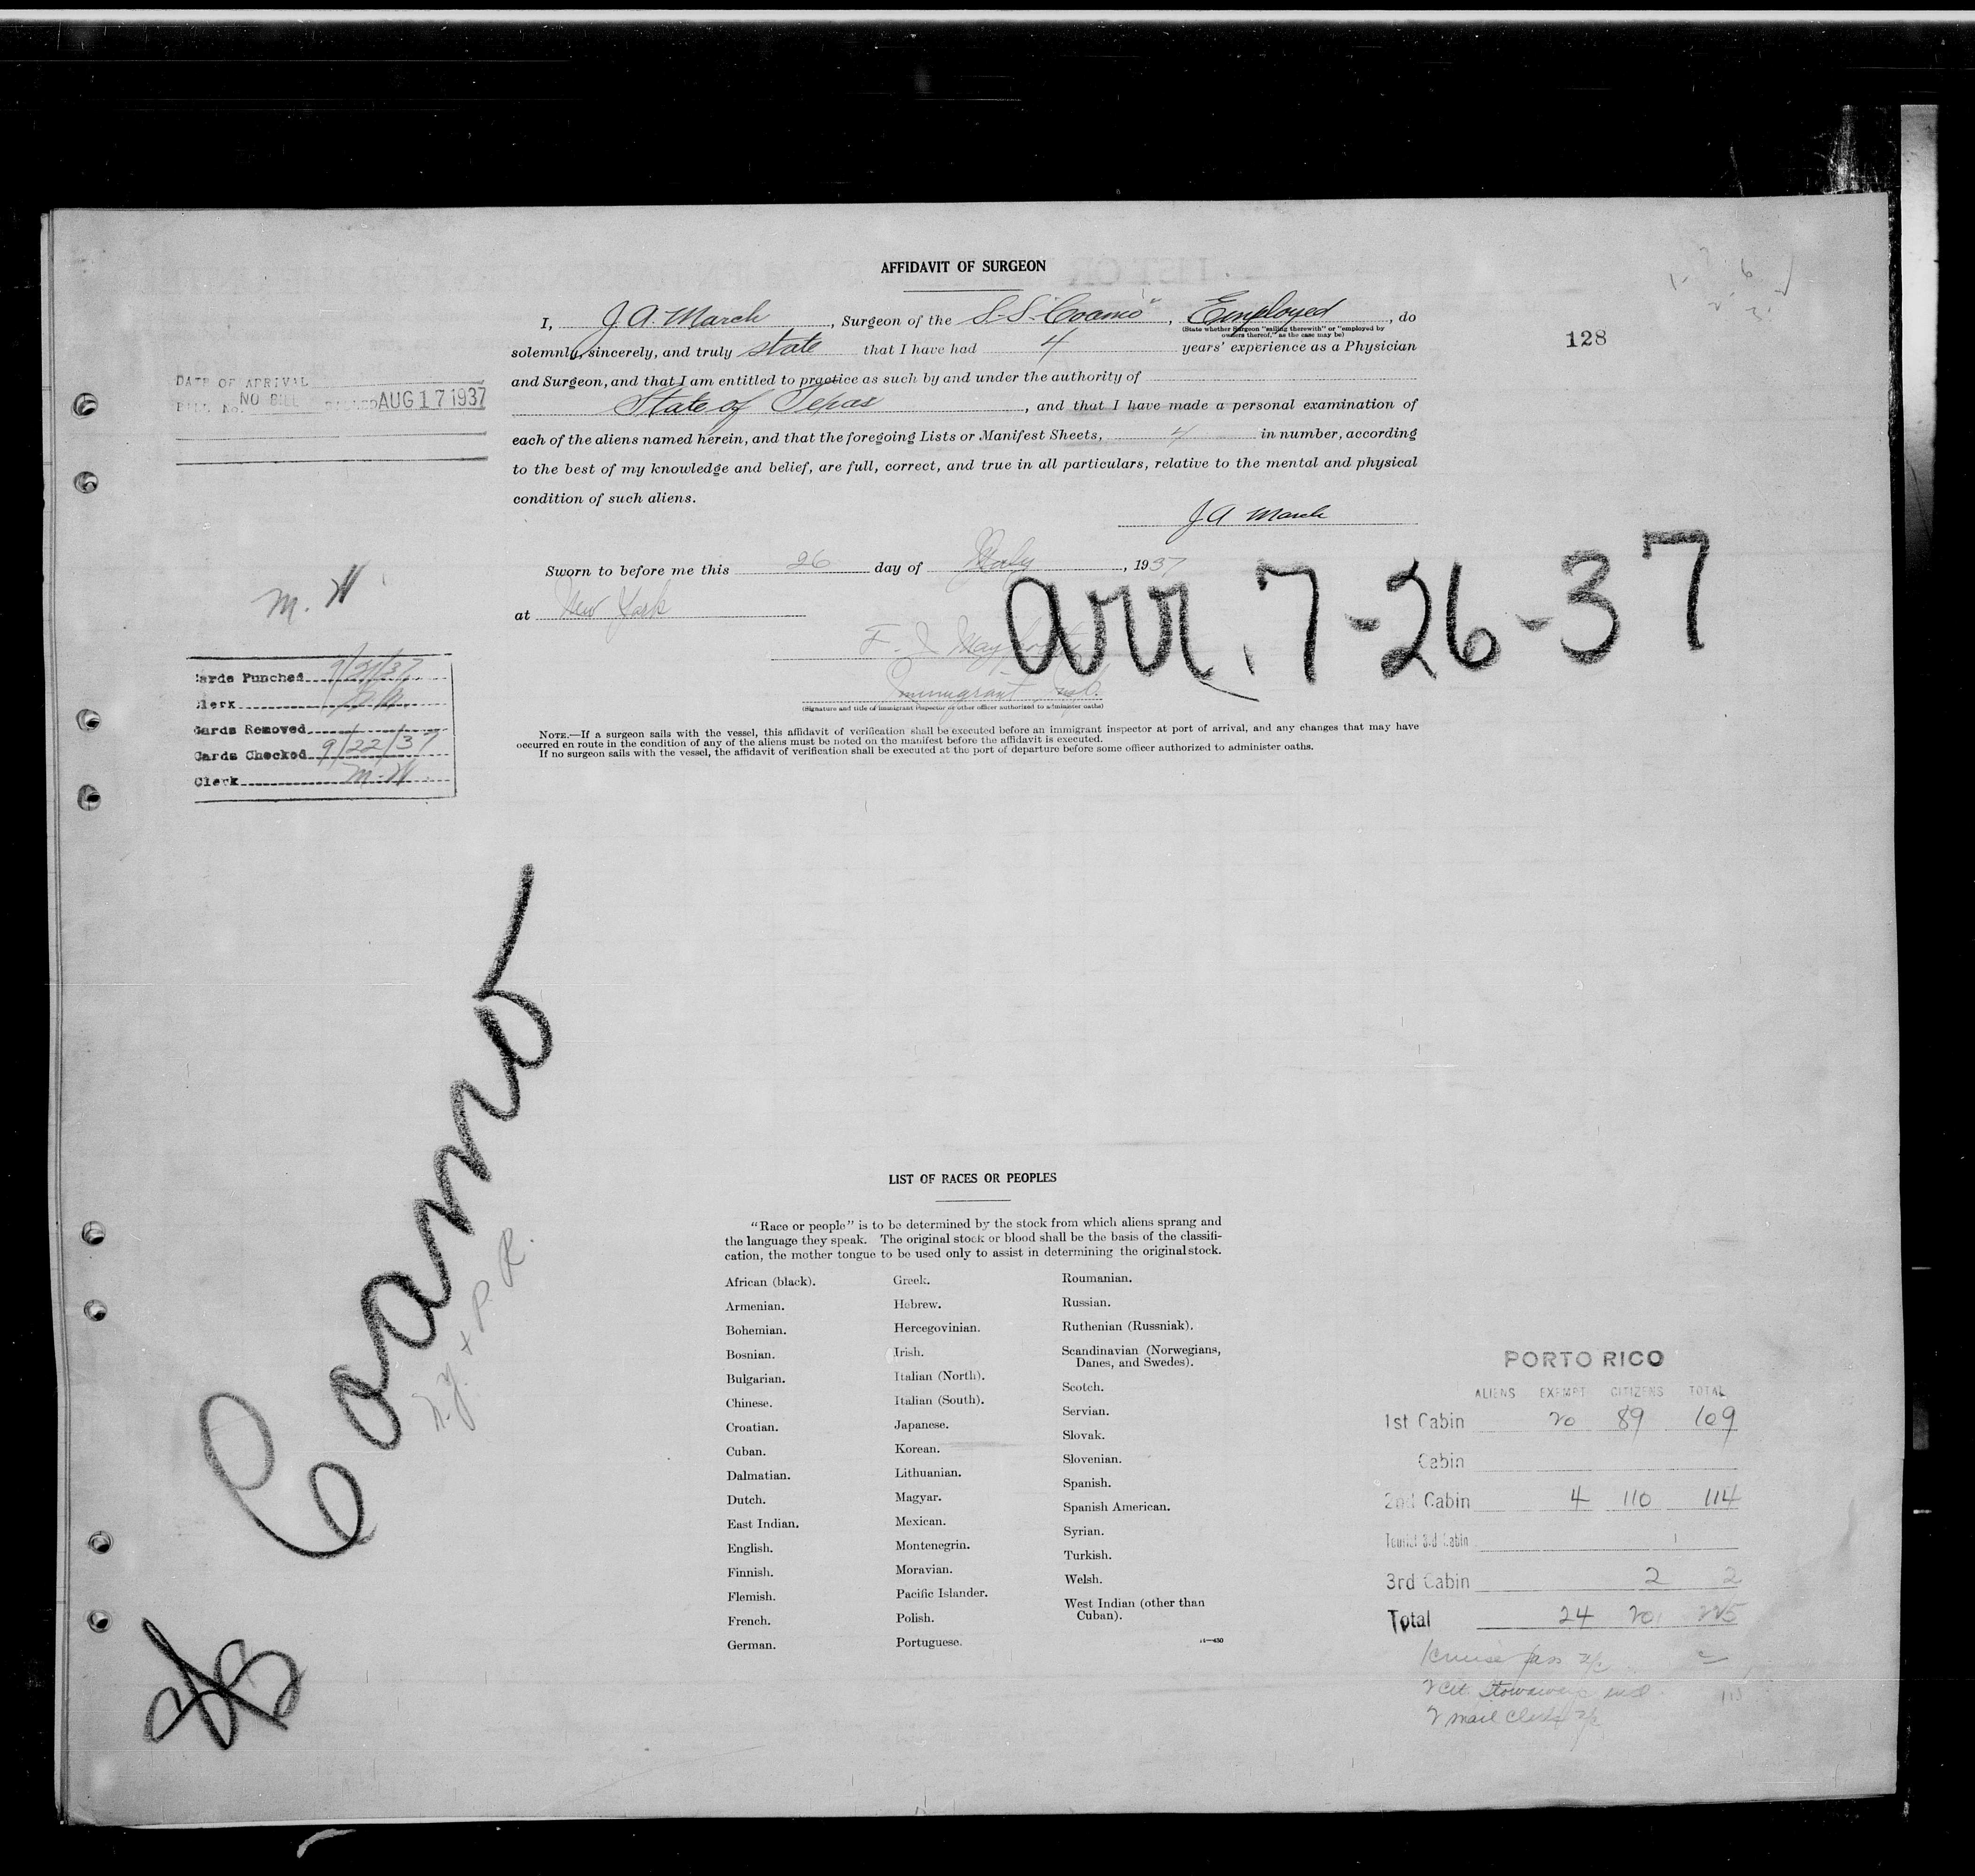 AFFIDAVIT OF SURGEON
I, J. A. March, Surgeon of the S.S. "Coamo", Employed, do
(State whether Surgeon "sailing therewith" or "employed by
owners thereof," as the case may be)
solemnly, sincerely, and truly state that I have had 4 years' experience as a Physician
and Surgeon, and that I am entitled to practice as such by and under the authority of
State of Texas, and that I have made a personal examination of
each of the aliens named herein, and that the foregoing Lists or Manifest Sheets, 4 in number, according
to the best of my knowledge and belief, are full, correct, and true in all particulars, relative to the mental and physical
condition of such aliens.
J A March
128
DATE OF ARRIVAL
BILL No. NO BILL BILLED AUG 17 1937
Sworn to before me this 26 day of July, 1937
at New York
arr. 7-26-37
F. J.
Immigrant Insp.
(Signature and title of immigrant inspector or other officer authorized to administer oaths)
NOTE.—If a surgeon sails with the vessel, this affidavit of verification shall be executed before an immigrant inspector at port of arrival, and any changes that may have
occurred en route in the condition of any of the aliens must be noted on the manifest before the affidavit is executed.
If no surgeon sails with the vessel, the affidavit of verification shall be executed at the port of departure before some officer authorized to administer oaths.
M. W.
Cards Punched 9/21/37
Clerk
Cards Removed
Cards Checked 9/22/37
Clerk M.W.
Coamo
N.Y. + P.R.
LIST OF RACES OR PEOPLES
"Race or people" is to be determined by the stock from which aliens sprang and
the language they speak. The original stock or blood shall be the basis of the classifi-
cation, the mother tongue to be used only to assist in determining the original stock.
African (black).
Armenian.
Bohemian.
Bosnian.
Bulgarian.
Chinese.
Croatian.
Cuban.
Dalmatian.
Dutch.
East Indian.
English.
Finnish.
Flemish.
French.
German.
Greek.
Hebrew.
Hercegovinian.
Irish.
Italian (North).
Italian (South).
Japanese.
Korean.
Lithuanian.
Magyar.
Mexican.
Montenegrin.
Moravian.
Pacific Islander.
Polish.
Portuguese.
Roumanian.
Russian.
Ruthenian (Russniak).
Scandinavian (Norwegians,
Danes, and Swedes).
Scotch.
Servian.
Slovak.
Slovenian.
Spanish.
Spanish American.
Syrian.
Turkish.
Welsh.
West Indian (other than
Cuban).
PORTO RICO
ALIENS EXEMPT CITIZENS TOTAL
1st Cabin 20 89 109
Cabin
2nd Cabin 4 110 114
Tourist 3rd Cabin
3rd Cabin 2 2
Total 24 201 225
1 cruise pass
2 cit. Stowaways incl.
2 mail clerks